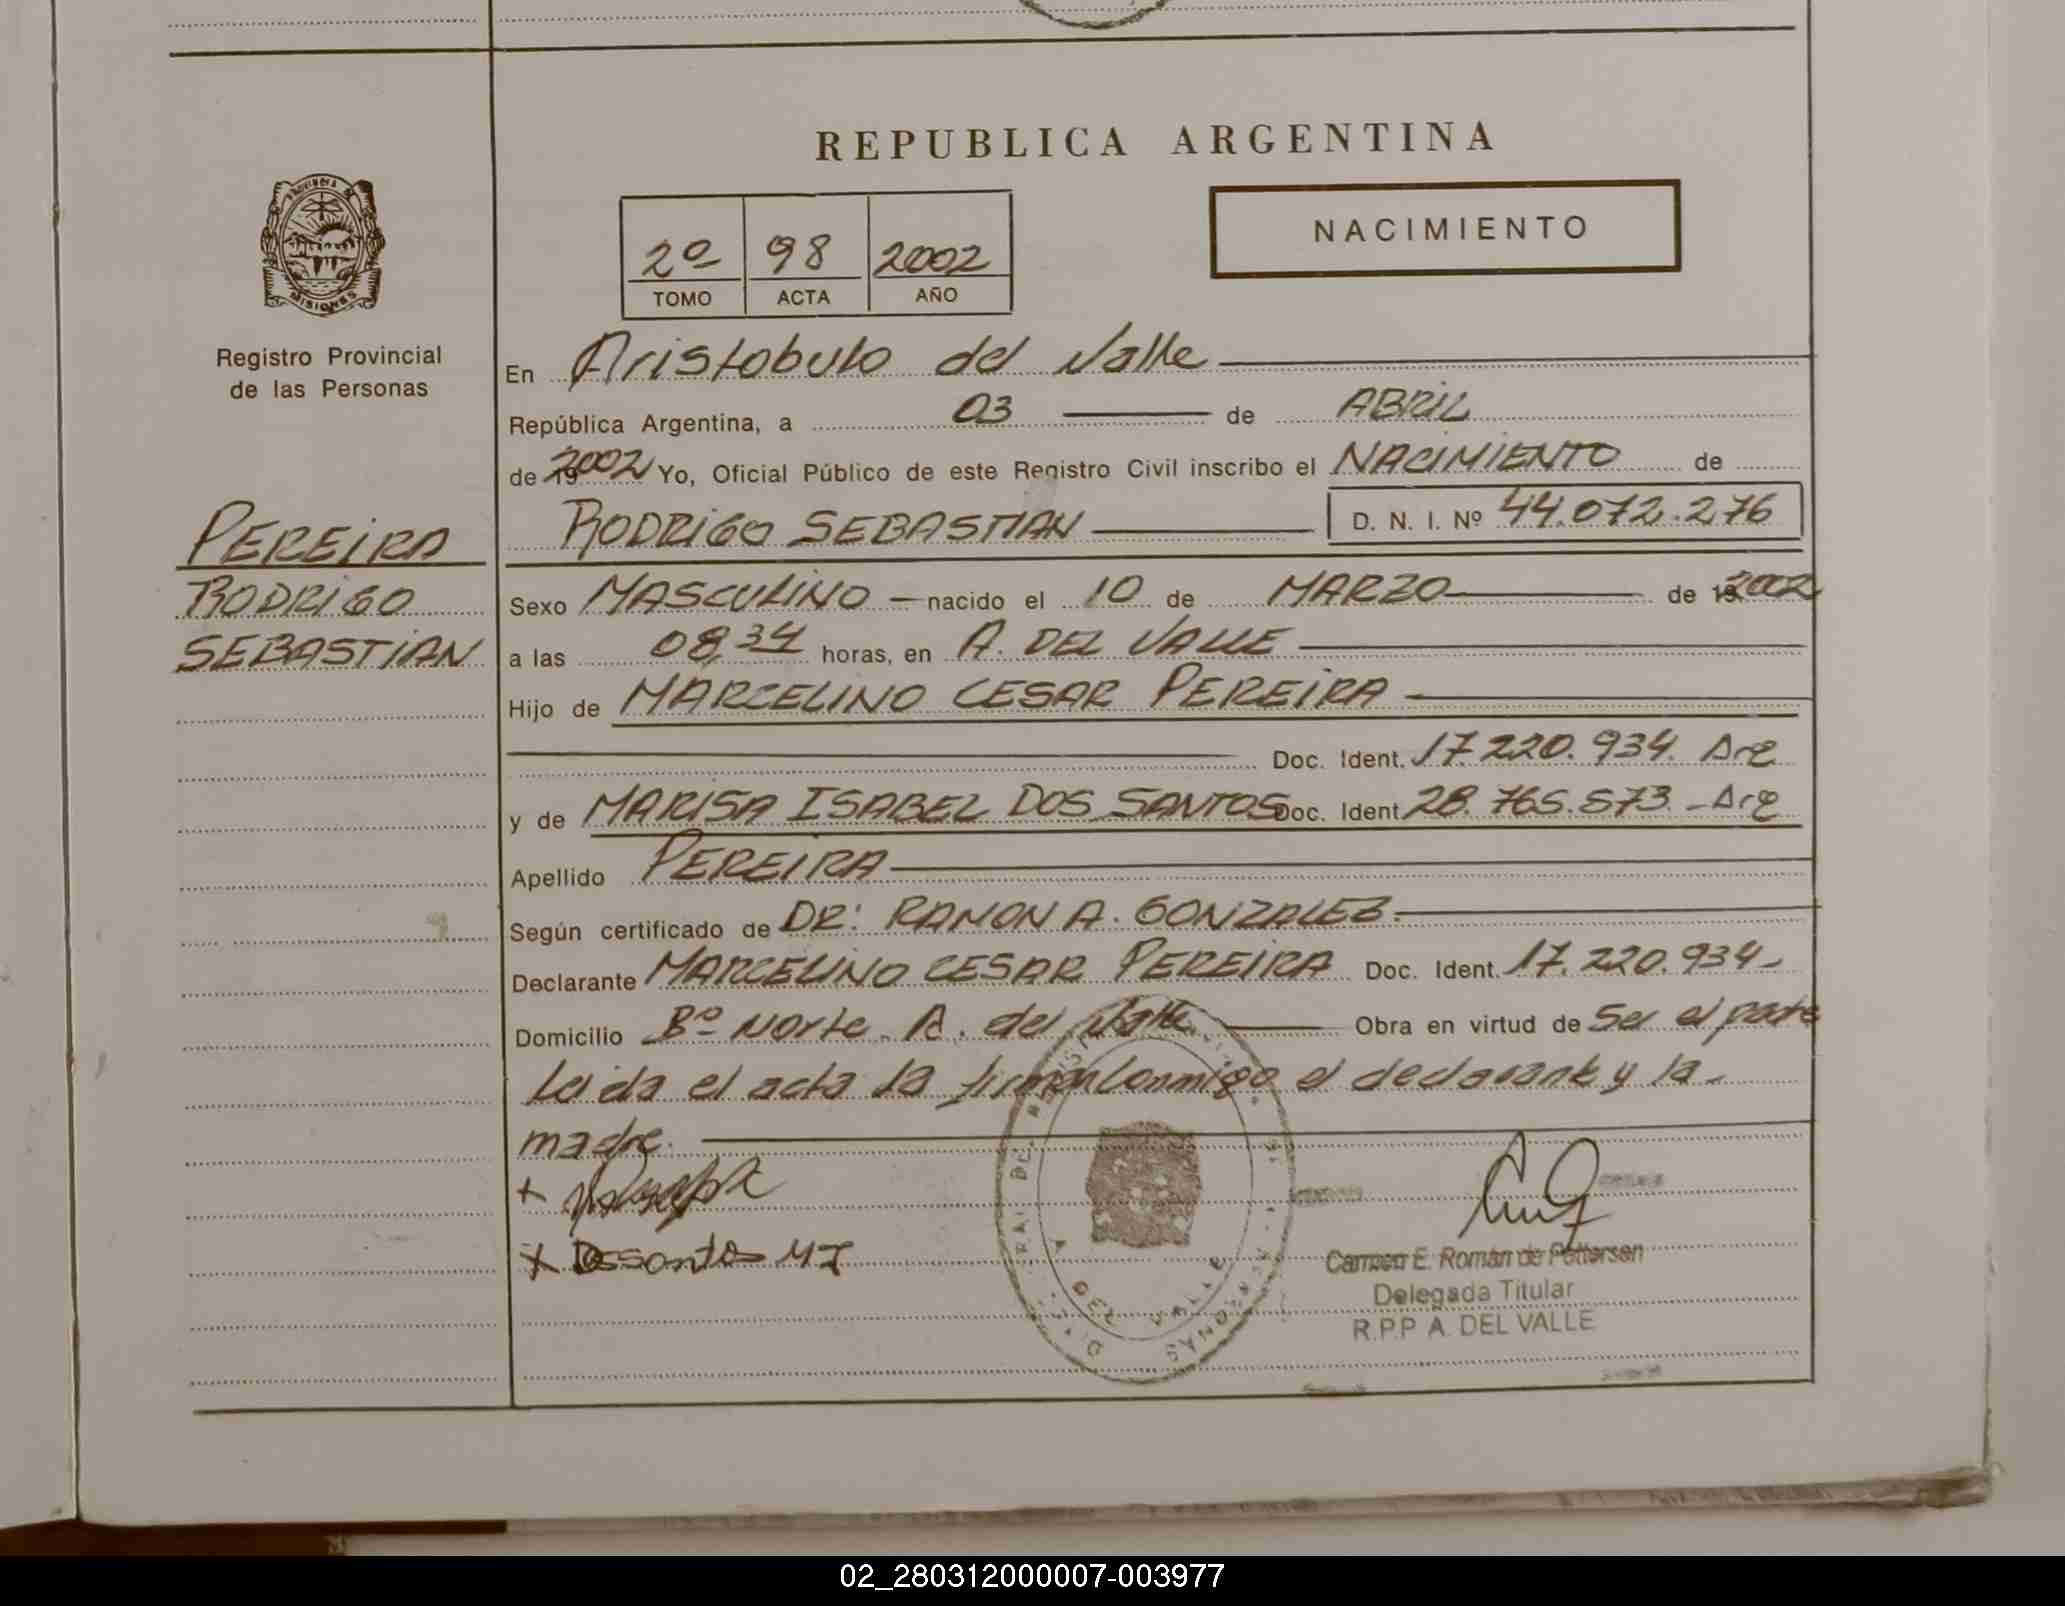 REPUBLICA ARGENTINA
PROVINCIA DE
MISIONES
Registro Provincial
de las Personas
2º 98 2002
TOMO ACTA AÑO
NACIMIENTO
En Aristobulo del Valle
República Argentina, a 03 de ABRIL
de 19 2002 Yo, Oficial Público de este Registro Civil inscribo el NACIMIENTO de
RODRIGO SEBASTIAN D. N. I. Nº 44.072.276
PEREIRA
RODRIGO
SEBASTIAN
Sexo MASCULINO nacido el 10 de MARZO de 19 2002
a las 08,34 horas, en A. DEL VALLE
Hijo de MARCELINO CESAR PEREIRA
Doc. Ident. 17.220.934. Arg
y de MARISA ISABEL DOS SANTOS Doc. Ident. 28.765.573.- Arg
Apellido PEREIRA
Según certificado de DR: RAMON A. GONZALEZ.
Declarante MARCELINO CESAR PEREIRA Doc. Ident. 17.220.934-
Domicilio Bº Norte. A. del Valle Obra en virtud de Ser el padre
Leida el acta la firman Conmigo el declarante y la-
madre.
x
x Dossantos MI
A DEL VALLE
Carmen E. Román de Pettersen
Delegada Titular
R.P.P A. DEL VALLE
02_280312000007-003977